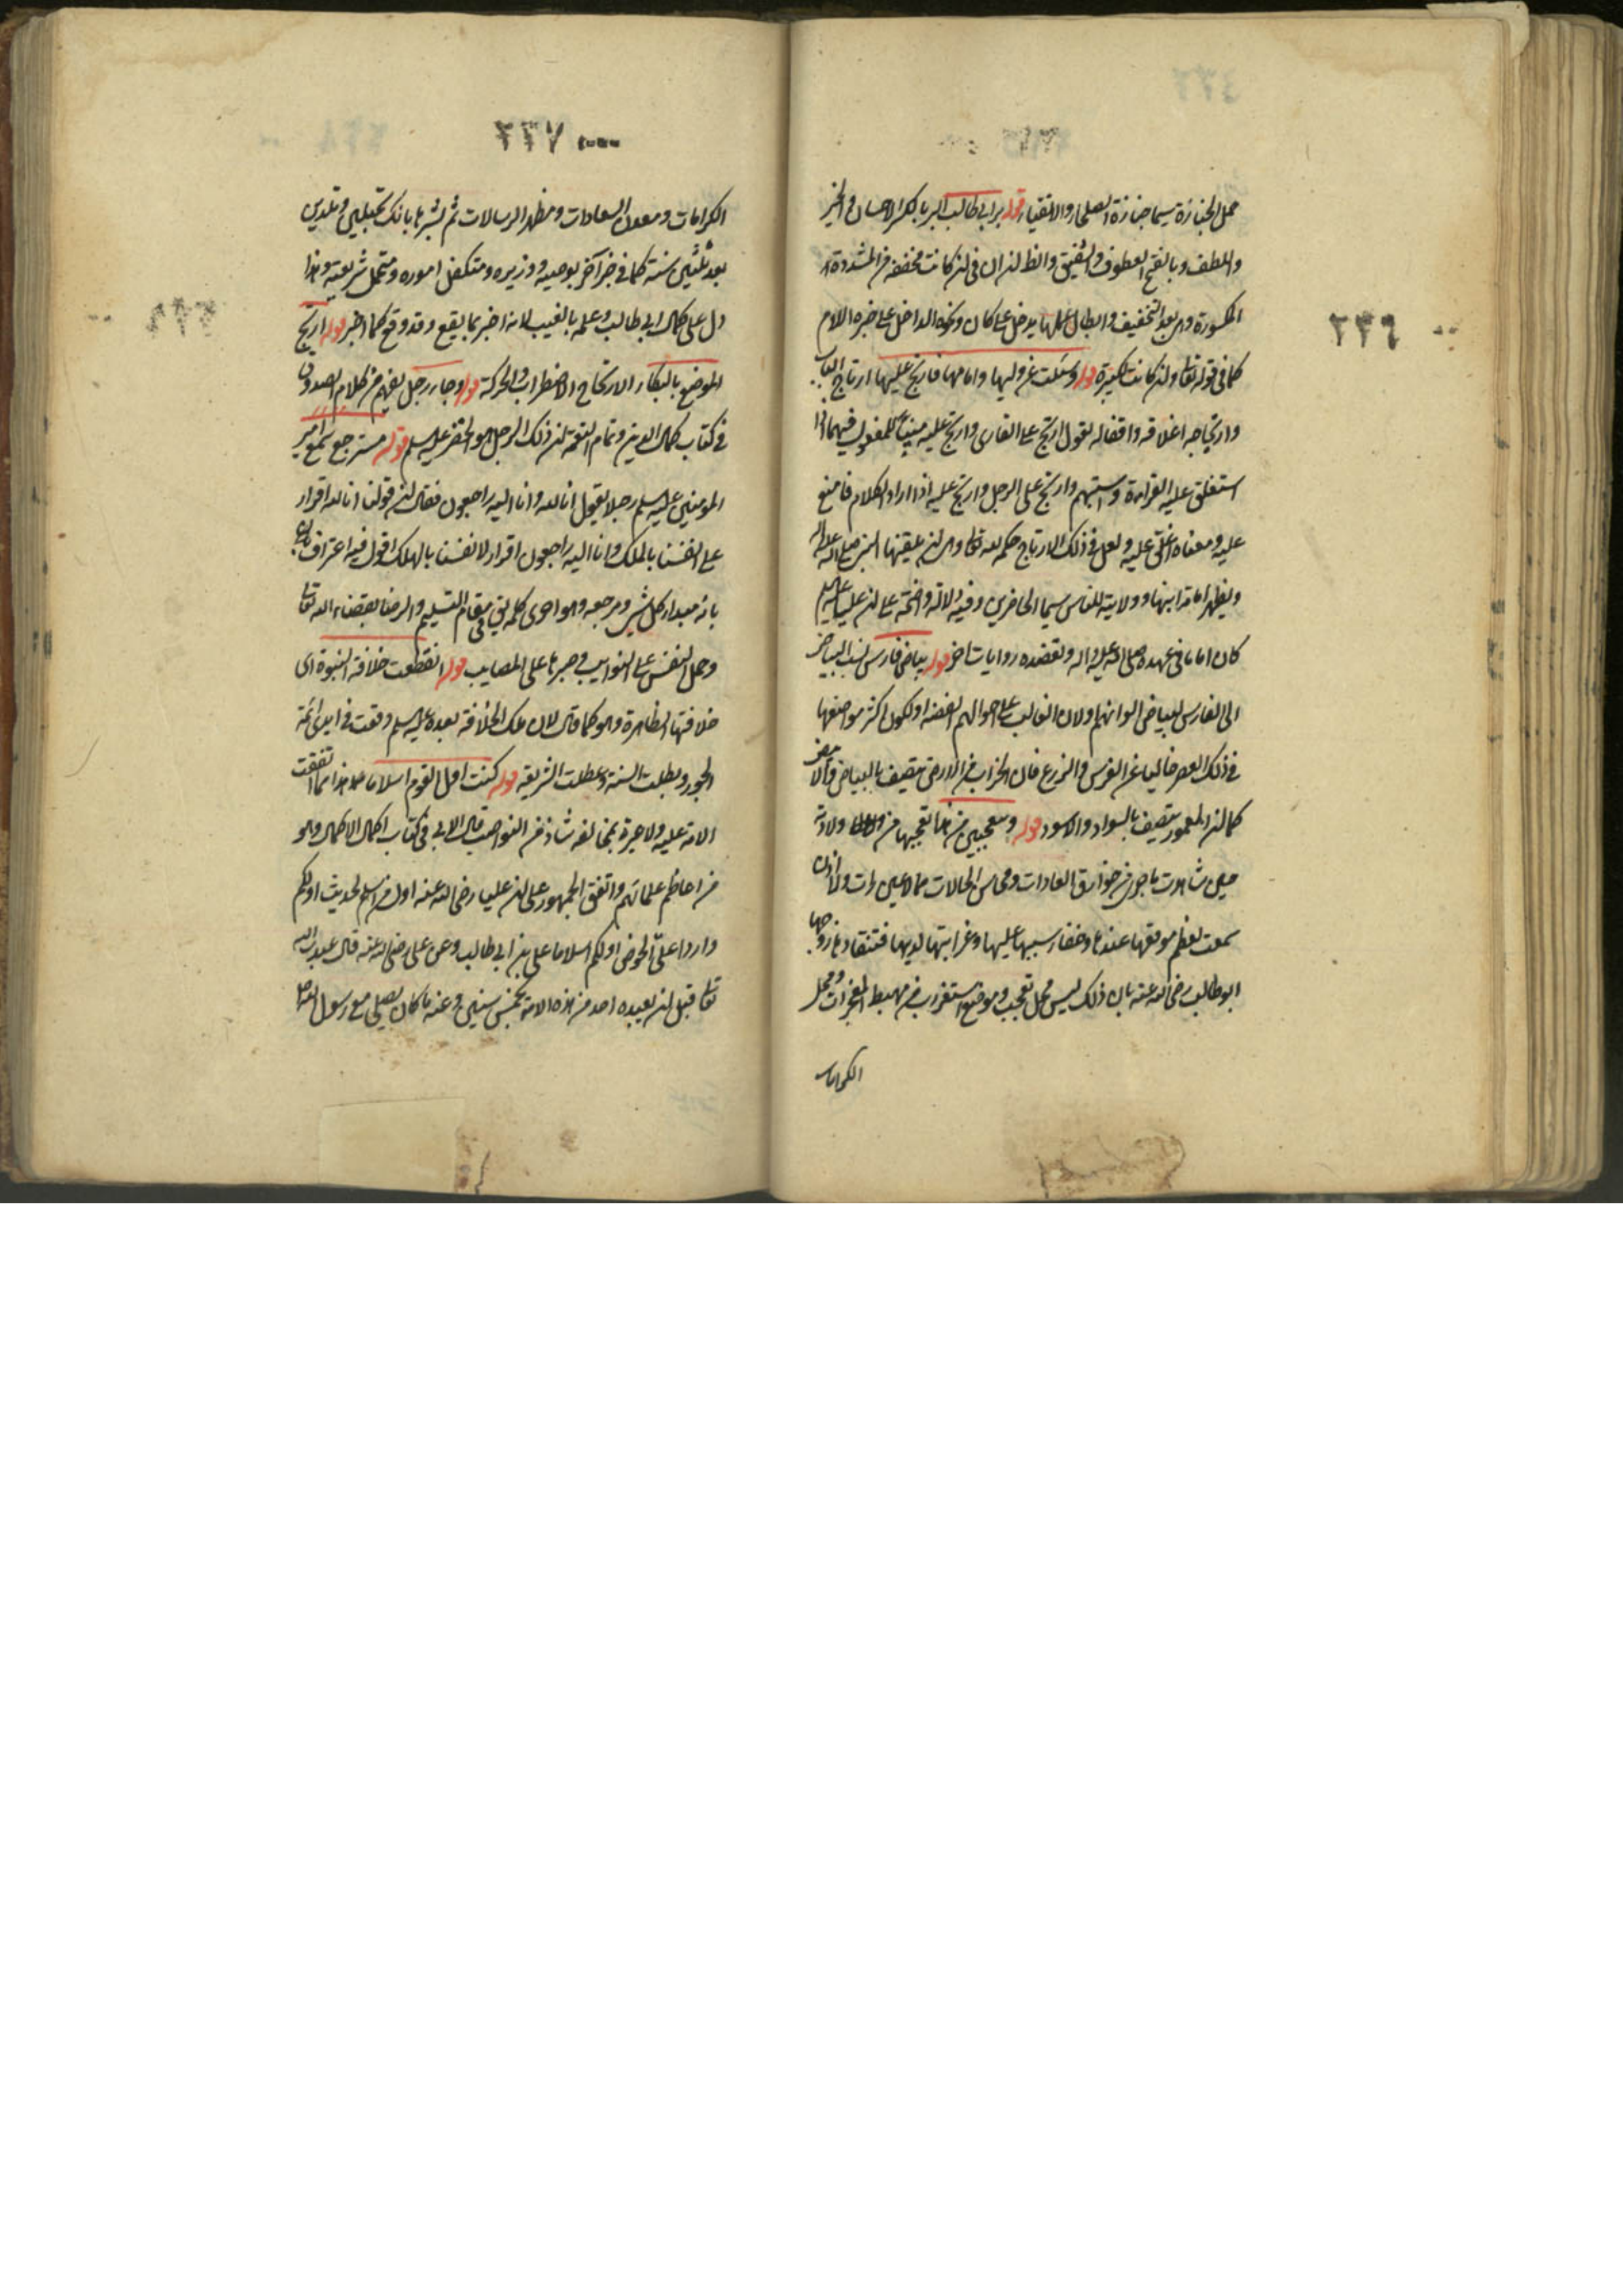 ٢٢٦
حمل الجنازة سيما جنازة الصلحاء والاتقياء قوله برابي طالب البر بالكسر الاحسان والخير
واللطف وبالفتح العطوف والشفيق والظ لنران في لنر كانت مخففة من المشددة
المكسورة وهى بعد التخفيف وابطال عملها يدخل على كان ونحوه الداخل على خبره اللام
كما في قوله تعا ولنر كانت لكبيرة قوله وسئلت عن وليها وامامها فارتج عليها ارتاج الباب
وارتجاجه اغلاقه واقفاله لقول ارتج على القارى وارتج عليه مبنيا للمفعول فيهما اذا
استغلق عليه القراءة واستبهم وارتج على الرجل وارتج عليه اذا اراد الكلام فامتنع
عليه ومعناه اغلق عليه ولعل في ذلك الارتاج حكمه لله تعا وهى لنر يلقنها النبي صلى الله عليه واله
ويظهر امامة ابنها وولايته للناس سيما الحاضرين وفيه دلالة واضحة على لنر عليا عليه السلم
كان اماما في عهده صلى الله عليه واله وتعضده روايات اخر قوله بياض فارس نسب البياض
الى الفارس لبياض الوانهم ولان الغالب على اموالهم الفضه او لكون اكثر مواضعها
في ذلك العصر خاليا عن الغرس والزرع فان الخراب من الارض يتصف بالبياض
كما لنر المعمور يتصف بالسواد والاسود قوله وتعجبين من هذا تعجبها من ولادة
حين شاهدت ما جرى من خوارق العادات ومحاسن الحالات مما لا عين رات ولا اذن
سمعت لعظم موقعها عندها وخفاء سببها عليها وغرابتها لديها فتنقاد زوجها
ابوطالب رضى الله عنه بان ذلك ليس محل تعجب وموضع استغراب من مهبط المعجزات ومحل
الكرامات
٢٢٧
الكرامات ومعدن السعادات ومظهر الرسالات ثم بشرها بانك تحبلين وتلدين
بعد ثلثين سنة كما في خبر آخر بوصيه ووزيره ومتكفل اموره ومتحمل شريعته وهذا
دل على كمال ابي طالب وعلمه بالغيب لانه اخبر بما يقع وقد وقع كما اخبر قوله ارتج
الموضع بالبكاء الارتجاج الاضطراب والحركة قوله وجاء رجل يفهم من كلام الصدوق
في كتاب كمال الدين وتمام النعمة لنر ذلك الرجل هو الخضر عليه السلم قوله مسترجع سمع امير
المومنين عليه السلم رجلا يقول انا لله وانا اليه راجعون فقال لنر قولنا انا لله اقرار
على انفسنا بالملك وانا اليه راجعون اقرار لانفسنا بالهلك اقول فيه اعتراف
بانه مبدا كل شىء ومرجعه وهو احرى كلمه في مقام التسليم والرضا بقضاء الله تعا
وحمل النفس على النوايب وصبرها على المصايب قوله انقطعت خلافة النبوة اى
خلافتها الظاهرة وهو كما قال لان تلك الخلافة بعده عليه السلم وقعت في ايدى ائمة
الجور وبطلت السنة وعطلت الشريعة قوله كنت اول القوم اسلاما هذا مما اتفقت
الامة عليه ولا عبرة بمخالفة شاذ من النواصب قال الابى في كتاب اكمال الاكمال وهو
من اعاظم علمائهم واتفق الجمهور على لنر عليا رضى الله عنه اول من اسلم لحديث اولكم
واردا على الحوض اولكم اسلاما على بن ابي طالب وعن على رضى الله عنه قال عبدت الله
تعا قبل لنر يعبده احد من هذه الامة بخمس سنين وعنه ما كان يصلى مع رسول الله